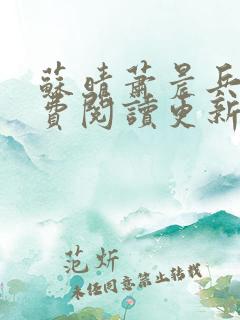 蘇晴蕭晨兵
費閱讀更新
范炘
未经同意禁止转载